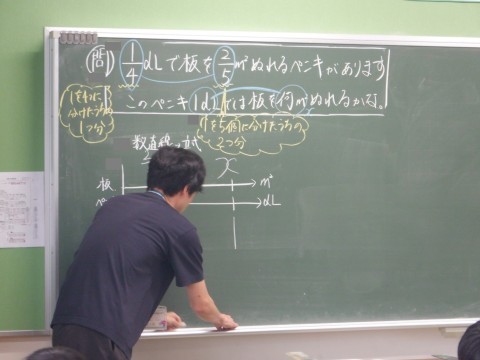 問 1/4 dLで板を 2/5 がぬれるペンキがあります
このペンキ1dLでは板を何がぬれるかな。
1を4つに
分けたうちの
1つ分
1を5個に分けたうちの
2つ分
数直線
x
板 m²
dL